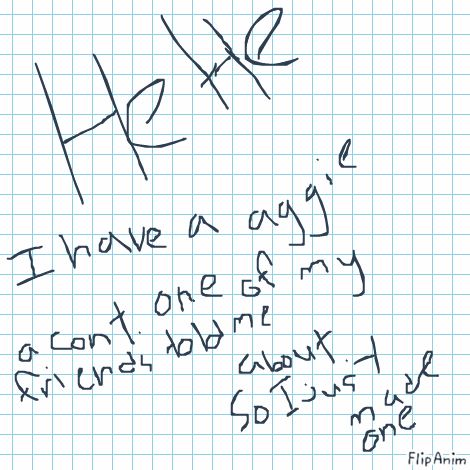 He He
I have a aggie
a cont. one of my
friends told me
about.
So I just
made
one
FlipAnim